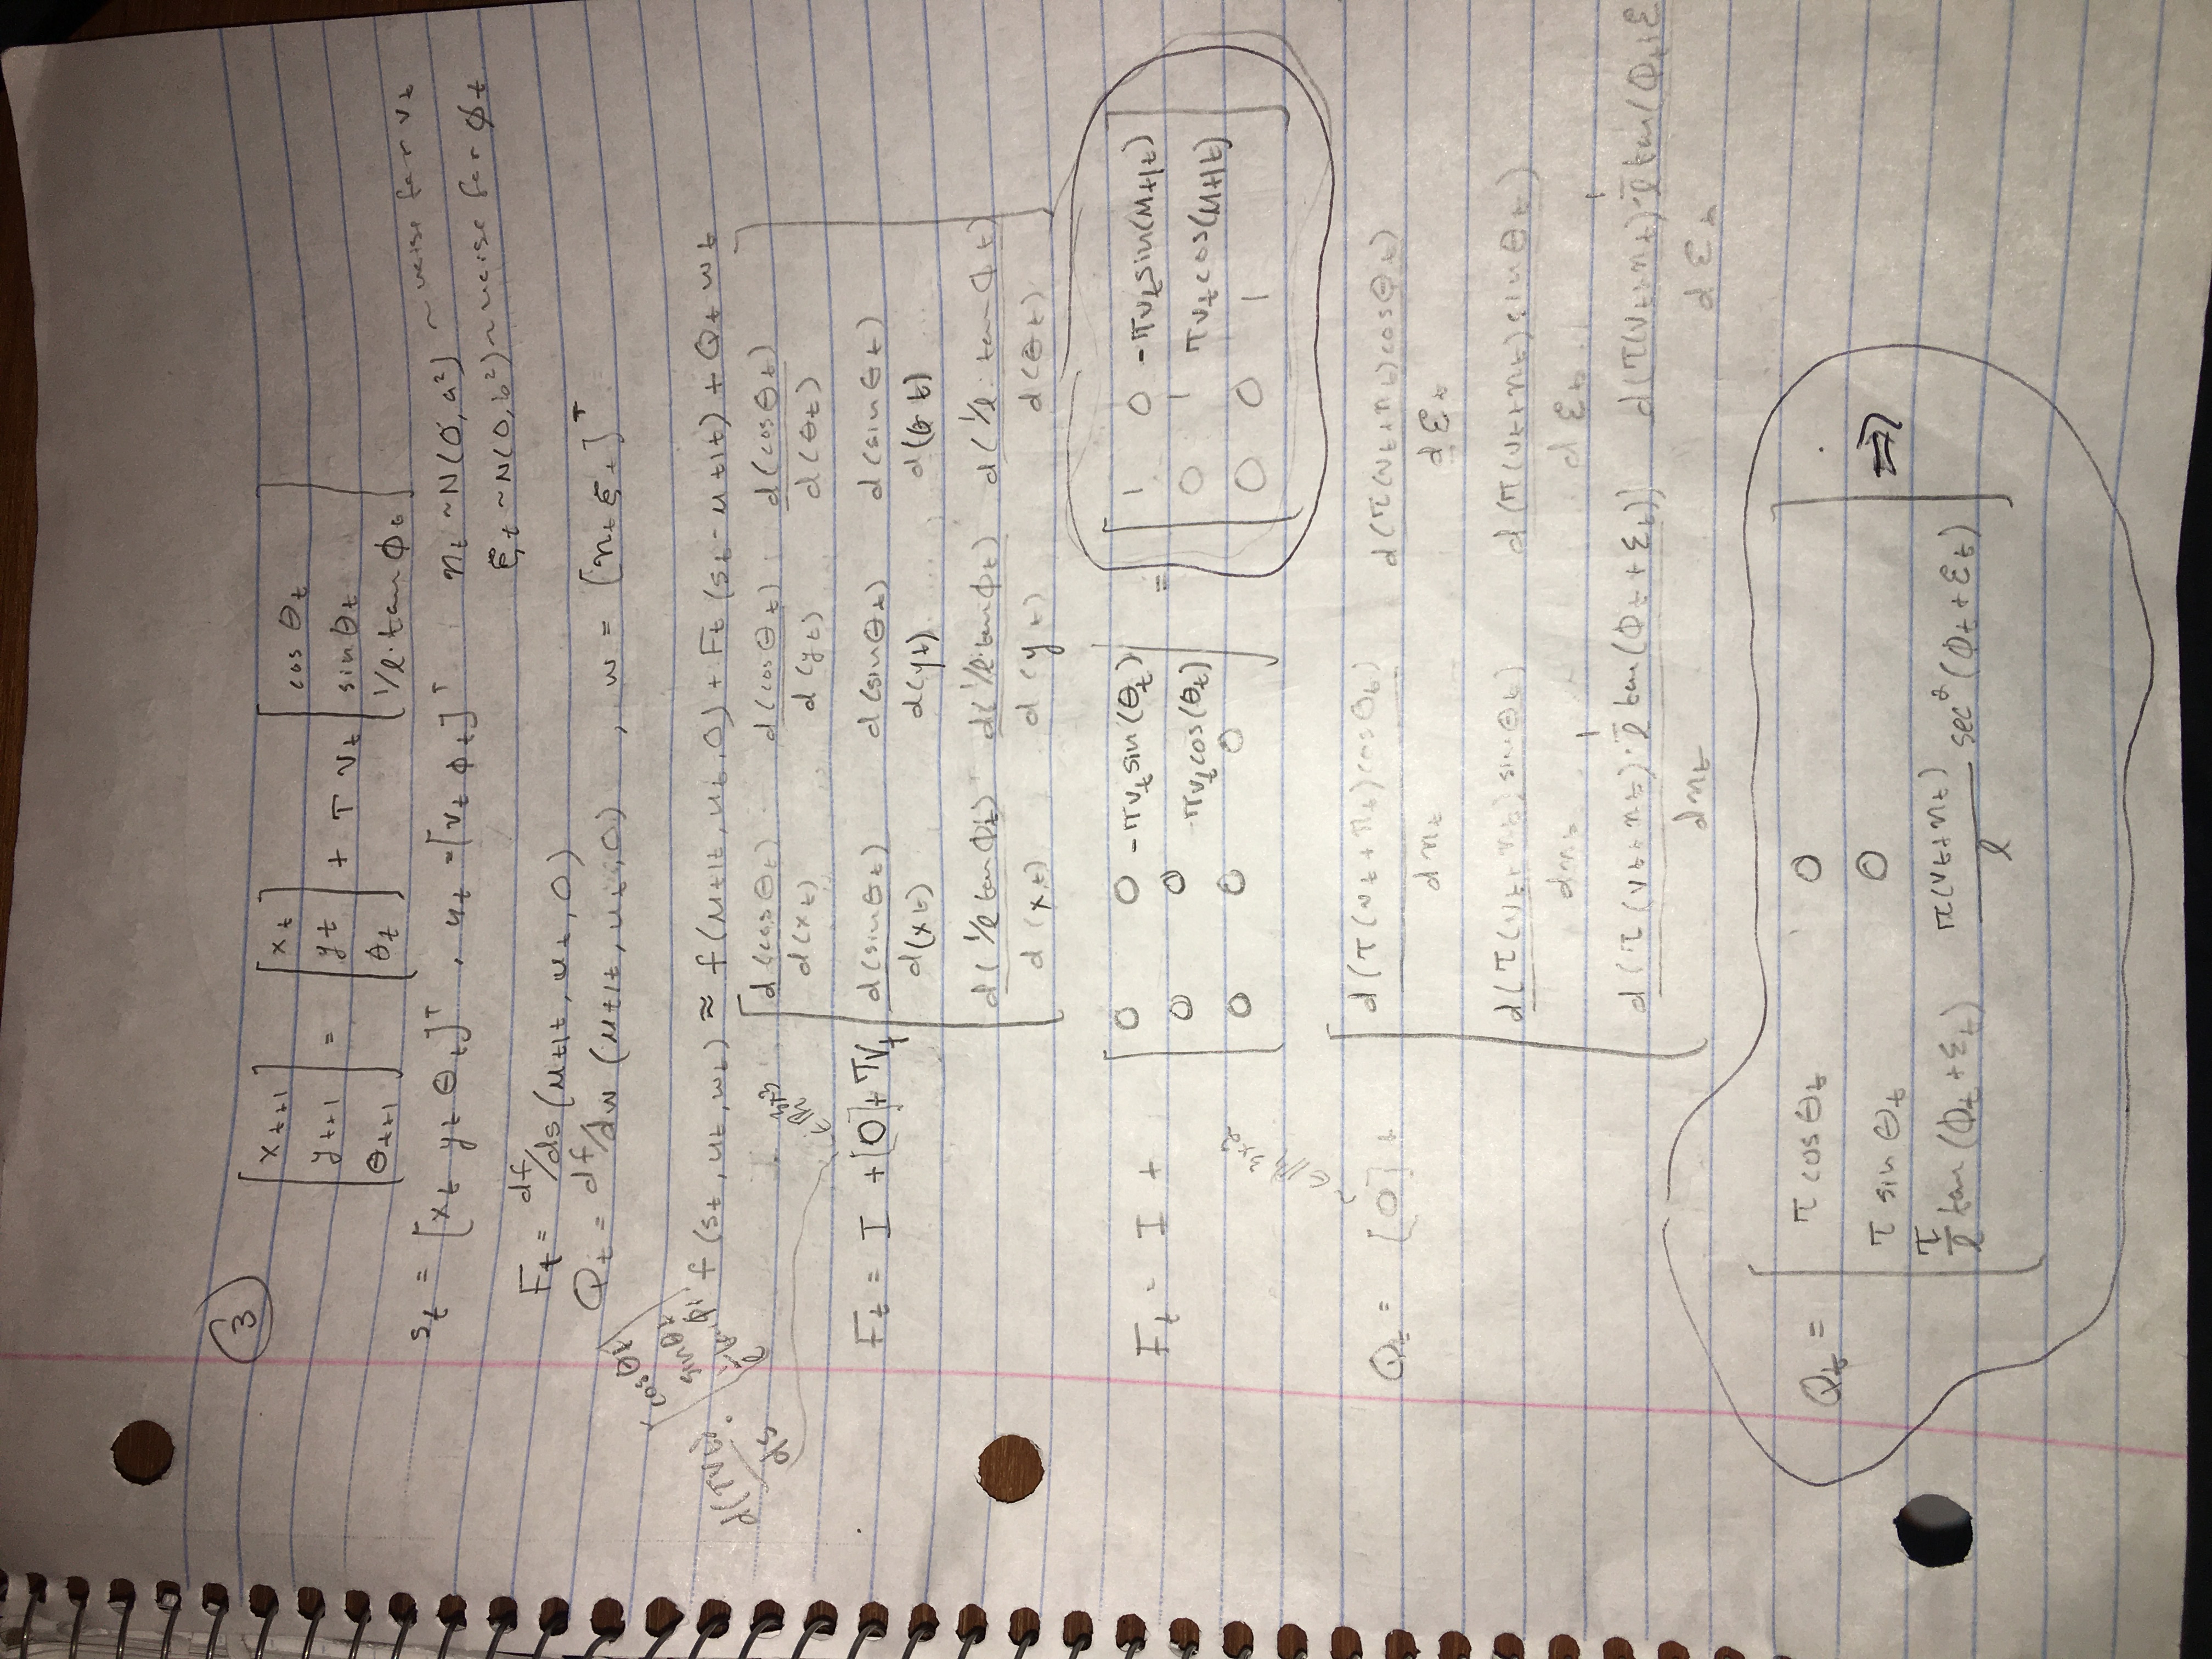 3
[x_{t+1} y_{t+1} θ_{t+1}] = [x_t y_t θ_t] + τ v_t [cos θ_t sin θ_t 1/ℓ·tan ϕ_t]
s_t = [x_t y_t θ_t]^T , u_t = [v_t ϕ_t]^T n_t ~ N(0, a²) ~ noise for v_t
ξ_t ~ N(0, b²) ~ noise for ϕ_t
F_t = df/ds (μ_{t|t}, u_t, 0)
Q_t = df/dw (μ_{t|t}, u_t, 0) , w = [n_t ξ_t]^T
d(τv_t)/ds · [cos θ_t sin θ_t 1/ℓ tan ϕ_t]
f(s_t, u_t, w_t) ≈ f(μ_{t|t}, u_t, 0) + F_t (s_t - μ_{t|t}) + Q_t w_t
∈ ℝ^{3×3}
d(cos θ_t)/d(x_t) d(cos θ_t)/d(y_t) d(cos θ_t)/d(θ_t)
F_t = I + [0] + τv_t d(sin θ_t)/d(x_t) d(sin θ_t)/d(y_t) d(sin θ_t)/d(θ_t)
d(1/ℓ tan ϕ_t)/d(x_t) d(1/ℓ·tan ϕ_t)/d(y_t) d(1/ℓ·tan ϕ_t)/d(θ_t)
F_t = I + [0 0 -τv_t sin(θ_t) 0 0 τv_t cos(θ_t) 0 0 0] = [1 0 -τv_t sin(μ_{t|t}) 0 1 τv_t cos(μ_{t|t}) 0 0 1]
~ ∈ ℝ^{3×2}
Q_t = [0] + d(τ(v_t + n_t) cos θ_t)/dn_t d(τ(v_t + n_t) cos θ_t)/dξ_t
d(τ(v_t + n_t) sin θ_t)/dn_t d(τ(v_t + n_t) sin θ_t)/dξ_t
d(τ(v_t + n_t)·1/ℓ tan(ϕ_t + ξ_t))/dn_t d(τ(v_t + n_t)·1/ℓ tan(ϕ_t + ξ/dξ_t
Q_t = [τ cos θ_t 0
τ sin θ_t 0 ⇒
τ/ℓ tan(ϕ_t + ξ_t) τ(v_t + n_t)/ℓ sec²(ϕ_t + ξ_t)]